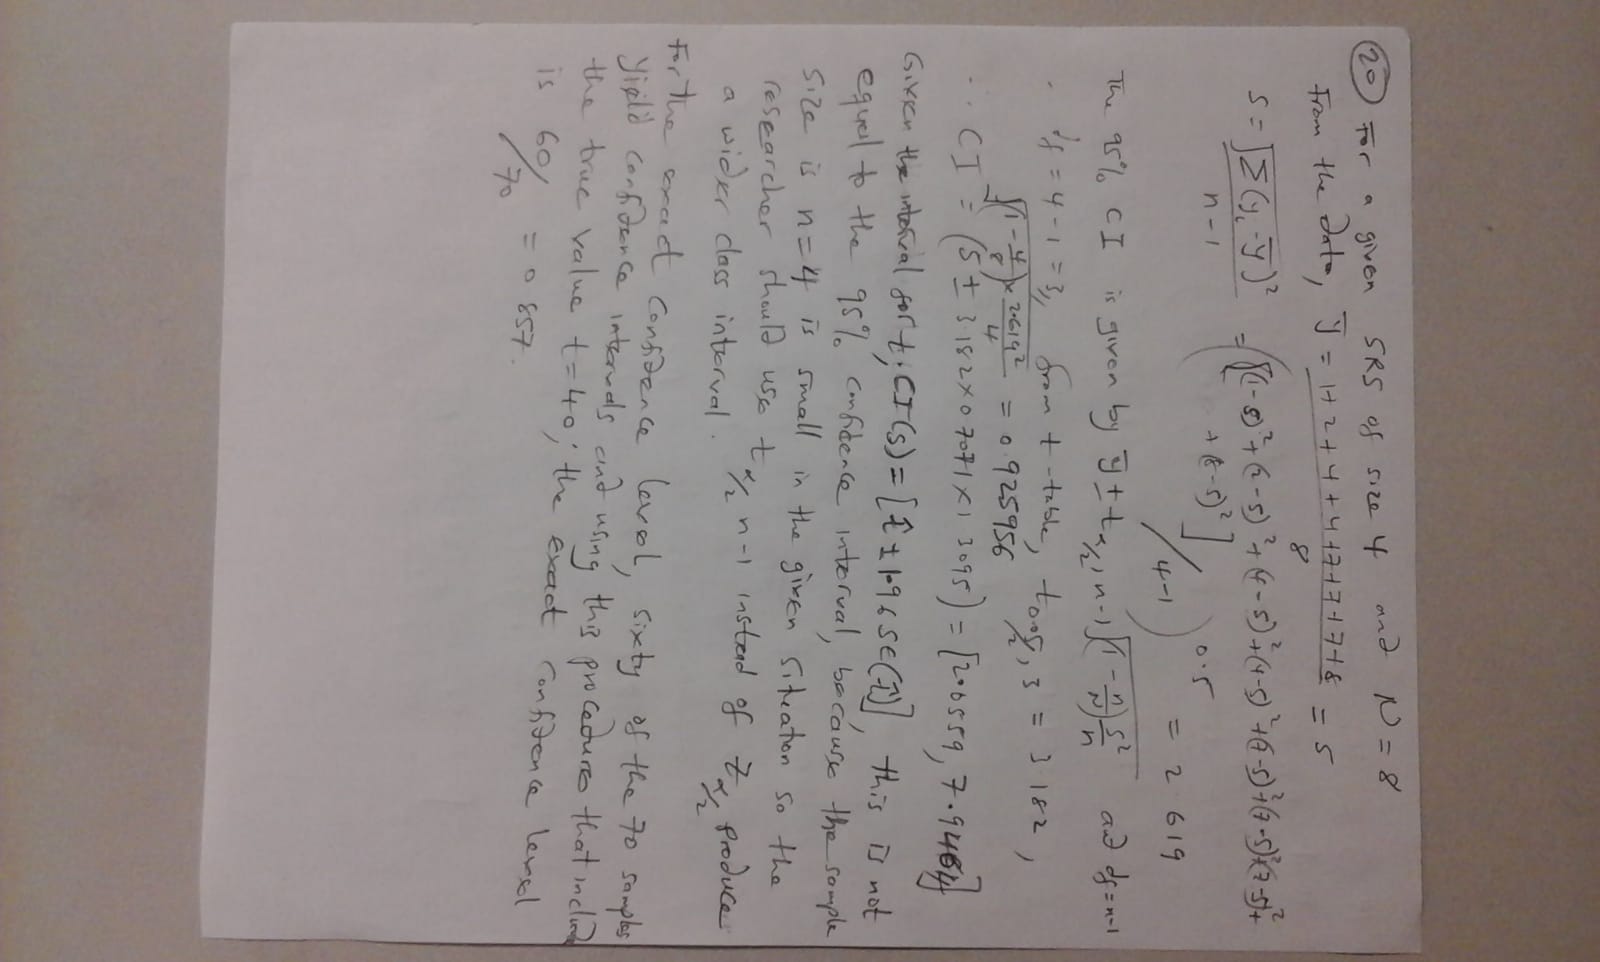 20 For a given SRS of size 4 and N = 8
From the data, ȳ = 1+2+4+4+7+7+7+8 / 8 = 5
s = √Σ(yᵢ-ȳ)² / n-1 = ([(1-5)²+(2-5)²+(4-5)²+(4-5)²+(7-5)²+(7-5)²+(7-5)²+
+(8-5)²] / 4-1)^0.5 = 2 619
The 95% CI is given by ȳ ± t α/2, n-1 √(1-n/N) s²/n and df = n-1
df = 4-1 = 3, from t-table, t 0.05/2, 3 = 3 182,
√(1-4/8) × 2.619²/4 = 0.925956
∴ CI = (5 ± 3.182×0 7071×1 3095) = [2.0559, 7.9464]
Given the interval for t; CI(s) = [t̂ ± 1.96 SE(t̂)], this is not
equal to the 95% confidence interval, because the sample
size is n=4 is small in the given situation so the
researcher should use t α/2 n-1 instead of Z α/2 produce
a wider class interval.
For the exact confidence level, sixty of the 70 samples
yield confidence intervals and using this procedures that include
the true value t=40; the exact confidence level
is 60/70 = 0 857.